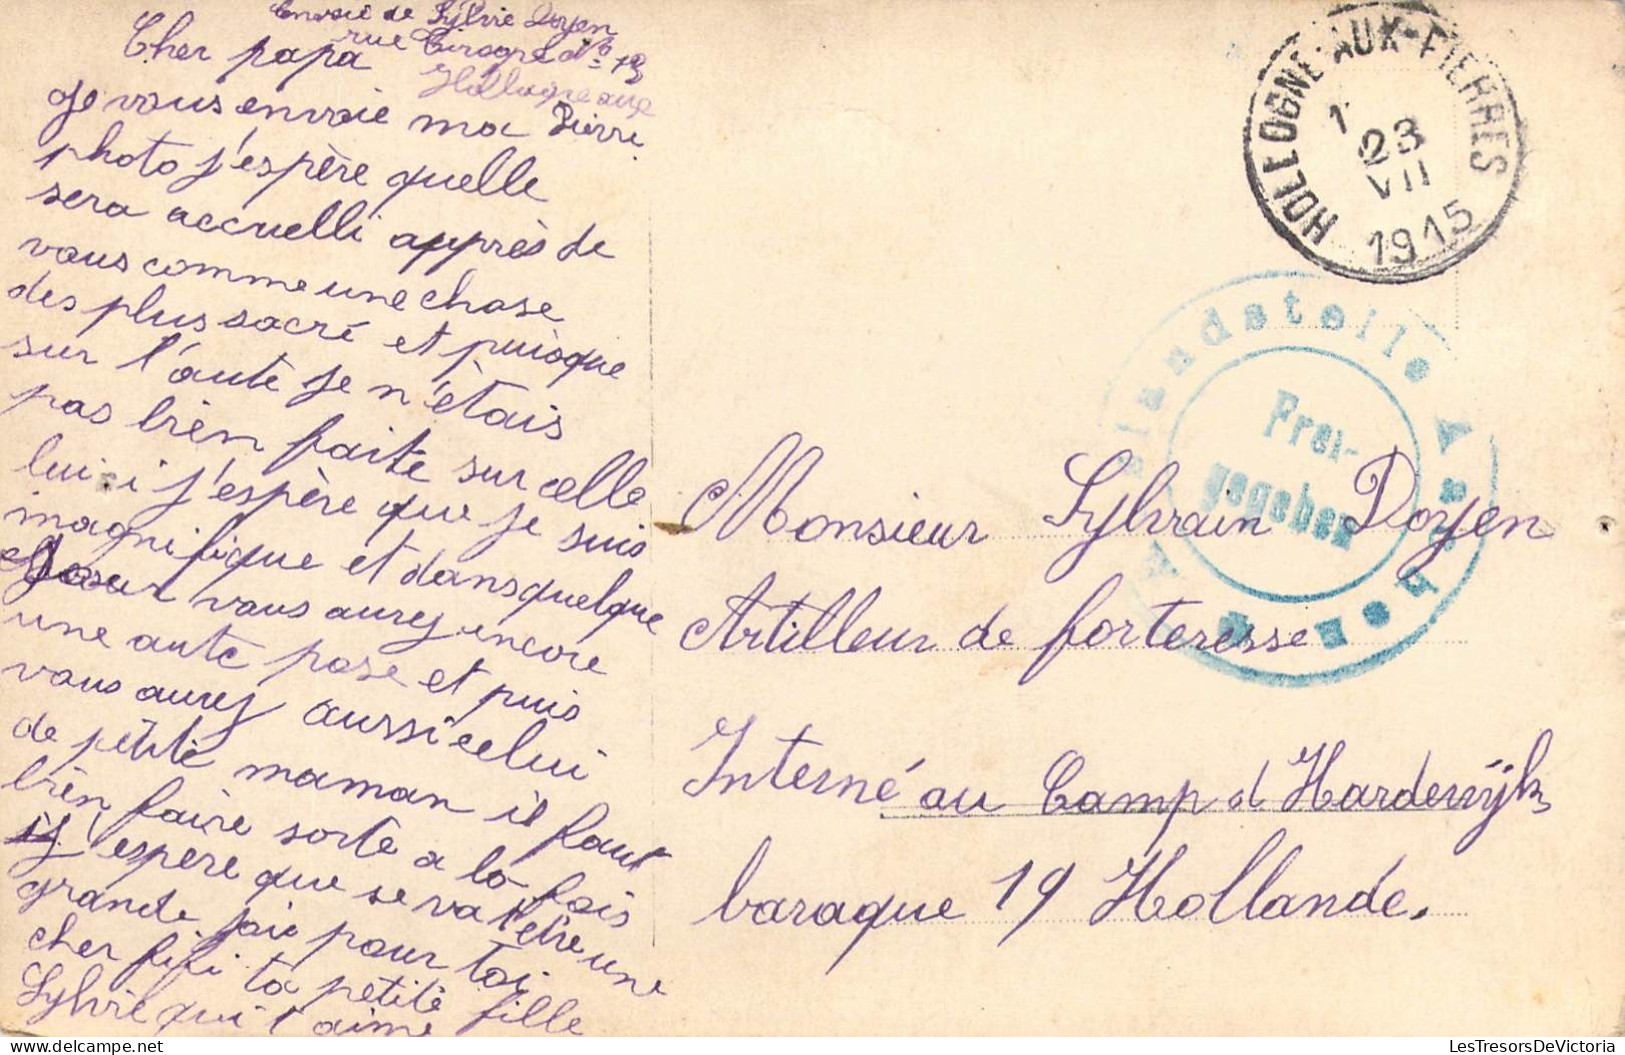 Envoie de Sylvie Doyen
rue Tirogne N° 13
Hollogne aux
Pierre
Cher papa
je vous envoie ma
photo j'espère quelle
sera accuelli apprès de
vous comme une chose
des plus sacré et puisque
sur l'aute je n'étais
pas bien faite sur celle
lui si j'espère que je suis
magnifique et dans quelque
jour vous aurez encore
une aute pose et puis
vous aurez aussi celui
de petite maman il faut
bien faire sorte a la fois
j'espère que se va t'etre une
grande joie pour toi
cher fifi ta petite fille
Sylvie qui t'aime
HOLLOGNE-AUX-PIERRES
1
23
VII
1915
Auslandstelle Aachen
Frei-
gegeben
Monsieur Sylvain Doyen
Artilleur de forteresse
Interné au Camp d Harderwÿk
baraque 19 Hollande.
LesTresorsDeVictoria